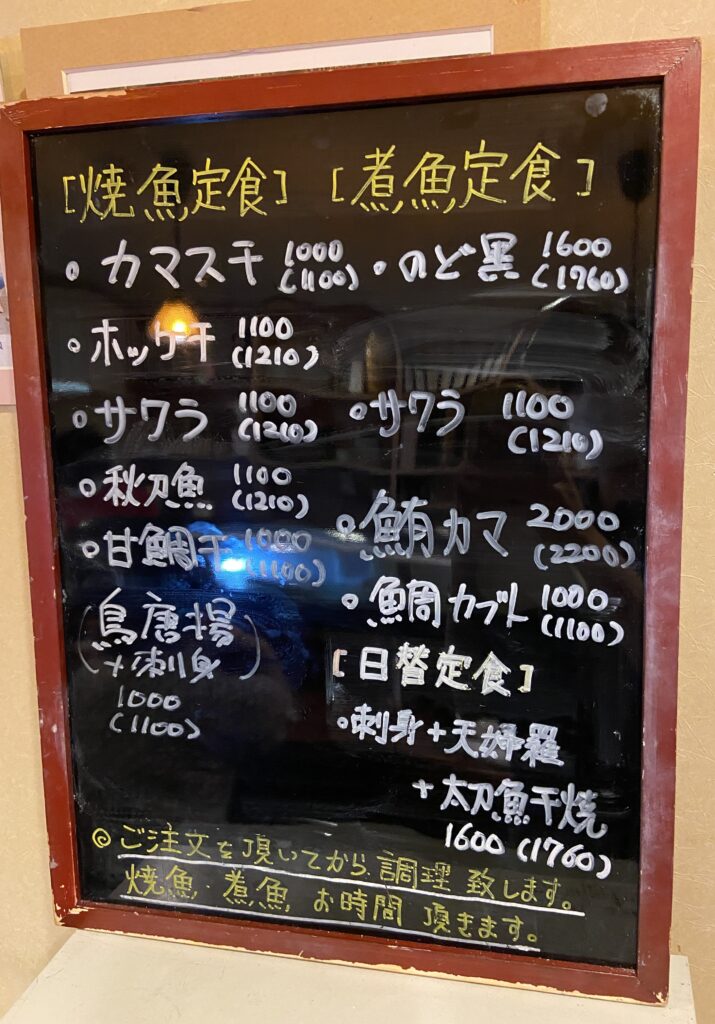 [焼魚定食]
・カマス干 1000
(1100)
・ホッケ干 1100
(1210)
・サワラ 1100
(1210)
・秋刀魚 1100
(1210)
・甘鯛干 1000
(1100)
(鳥唐揚
+刺身)
1000
(1100)
[煮魚定食]
・のど黒 1600
(1760)
・サワラ 1100
(1210)
・鮪カマ 2000
(2200)
・鯛カブト 1000
(1100)
[日替定食]
・刺身+天婦羅
+太刀魚干焼
1600 (1760)
◎ご注文を頂いてから調理致します。
焼魚 煮魚 お時間頂きます。